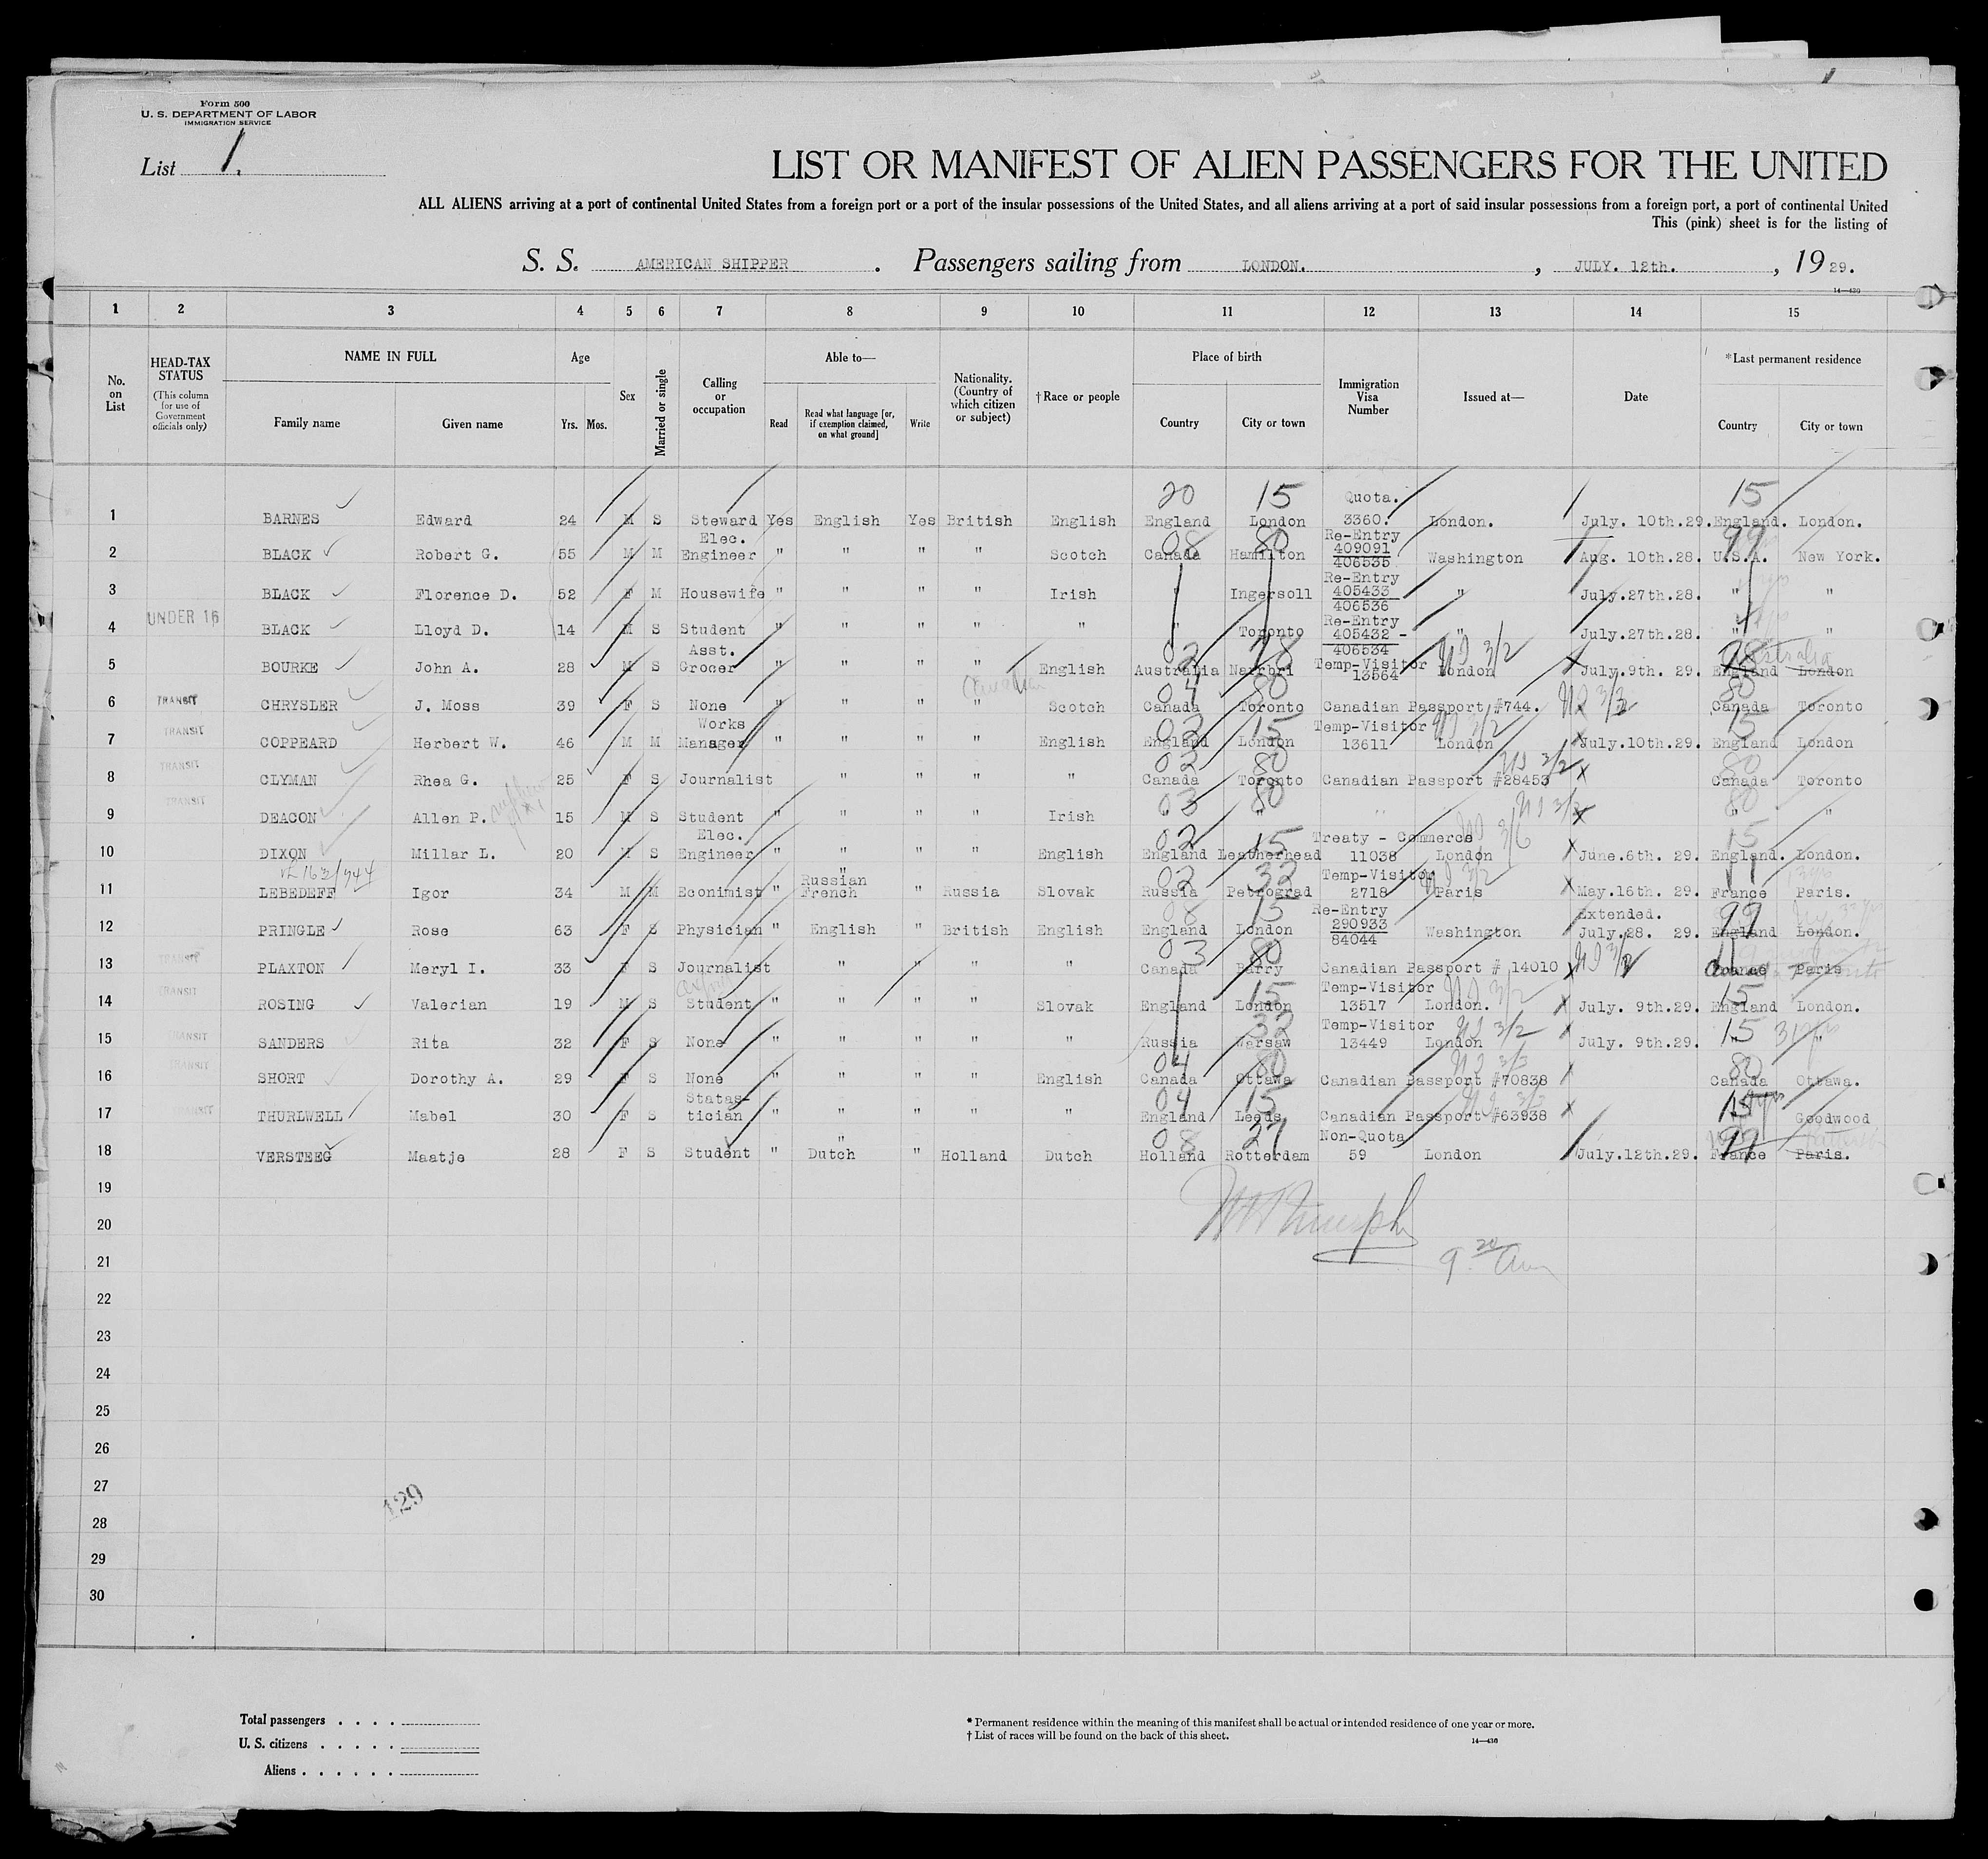 Form 500
U. S. DEPARTMENT OF LABOR
IMMIGRATION SERVICE
List 1.
LIST OR MANIFEST OF ALIEN PASSENGERS FOR THE UNITED
ALL ALIENS arriving at a port of continental United States from a foreign port or a port of the insular possessions of the United States, and all aliens arriving at a port of said insular possessions from a foreign port, a port of continental United
This (pink) sheet is for the listing of
S. S. AMERICAN SHIPPER. Passengers sailing from LONDON. , JULY. 12th. , 19 29.
14—430
1 2 3 4 5 6 7 8 9 10 11 12 13 14 15
No. on List
HEAD-TAX STATUS
(This column for use of Government officials only)
NAME IN FULL
Family name Given name
Age
Yrs. Mos.
Sex
Married or single
Calling or occupation
Able to—
Read
Read what language [or, if exemption claimed, on what ground]
Write
Nationality. (Country of which citizen or subject)
† Race or people
Place of birth
Country City or town
Immigration Visa Number
Issued at—
Date
* Last permanent residence
Country City or town
20 15 Quota. 15
1 BARNES Edward 24 M S Steward Yes English Yes British English England London 3360. London. July. 10th.29. England. London.
Elec. 08 80 Re-Entry 99
2 BLACK Robert G. 55 M M Engineer " " " " Scotch Canada Hamilton 409091 406535 Washington Aug. 10th.28. U.S.A. New York.
Re-Entry
3 BLACK Florence D. 52 F M Housewife " " " " Irish " Ingersoll 405433 406536 " July.27th.28. " "
UNDER 16 Re-Entry
4 BLACK Lloyd D. 14 M S Student " " " " " " Toronto 405432 - 406534 " July.27th.28. " "
Asst. 02 78 Temp-Visitor 3/2 78 Australia
5 BOURKE John A. 28 M S Grocer " " " " English Australia Narrbri 13564 London July.9th. 29. England London
Canadian 04 80 3/3 80
6 TRANSIT CHRYSLER J. Moss 39 F S None " " " " Scotch Canada Toronto Canadian Passport #744. Canada Toronto
Works 02 15 Temp-Visitor 3/2 15
7 TRANSIT COPPEARD Herbert W. 46 M M Manager " " " " English England London 13611 London July.10th.29. England London
03 80 3/2 80
8 TRANSIT CLYMAN Rhea G. 25 F S Journalist " " " " Canada Toronto Canadian Passport #28453 Canada Toronto
03 80 80
9 TRANSIT DEACON Allen P. 15 M S Student " " " " Irish " " " " "
Elec. 02 15 Treaty - Commerce 3/6 15
10 DIXON Millar L. 20 M S Engineer " " " " English England Leatherhead 11038 London June.6th. 29. England. London.
" Russian 02 32 Temp-Visitor 3/2 11
11 LEBEDEFF Igor 34 M M Econimist " French " Russia Slovak Russia Petrograd 2718 Paris May.16th. 29. France Paris.
08 15 Re-Entry Extended. 99
12 PRINGLE Rose 63 F S Physician " English " British English England London 290933 84044 Washington July.28. 29. England London.
03 80 11
13 TRANSIT PLAXTON Meryl I. 33 F S Journalist " " " " Canada Barry Canadian Passport # 14010 Paris
15 Temp-Visitor 3/2 15
14 TRANSIT ROSING Valerian 19 M S Student " " " " Slovak England London 13517 London. July. 9th.29. England London.
32 Temp-Visitor 3/2 15
15 TRANSIT SANDERS Rita 32 F S None " " " " " Russia Warsaw 13449 London July. 9th.29. " "
04 80 3/3 80
16 TRANSIT SHORT Dorothy A. 29 F S None " " " " English Canada Ottawa Canadian Passport #70838 Canada Ottawa.
Statas- 04 15 15
17 TRANSIT THURLWELL Mabel 30 F S tician " " " " " England Leeds Canadian Passport #63938 Goodwood
" 08 27 Non-Quota 99
18 VERSTEEG Maatje 28 F S Student " Dutch " Holland Dutch Holland Rotterdam 59 London July.12th.29. France Paris.
19
20
21
22
23
24
25
26
27
129
28
29
30
Total passengers . . . .
U. S. citizens . . . . .
Aliens . . . . . .
* Permanent residence within the meaning of this manifest shall be actual or intended residence of one year or more.
† List of races will be found on the back of this sheet.
14—430